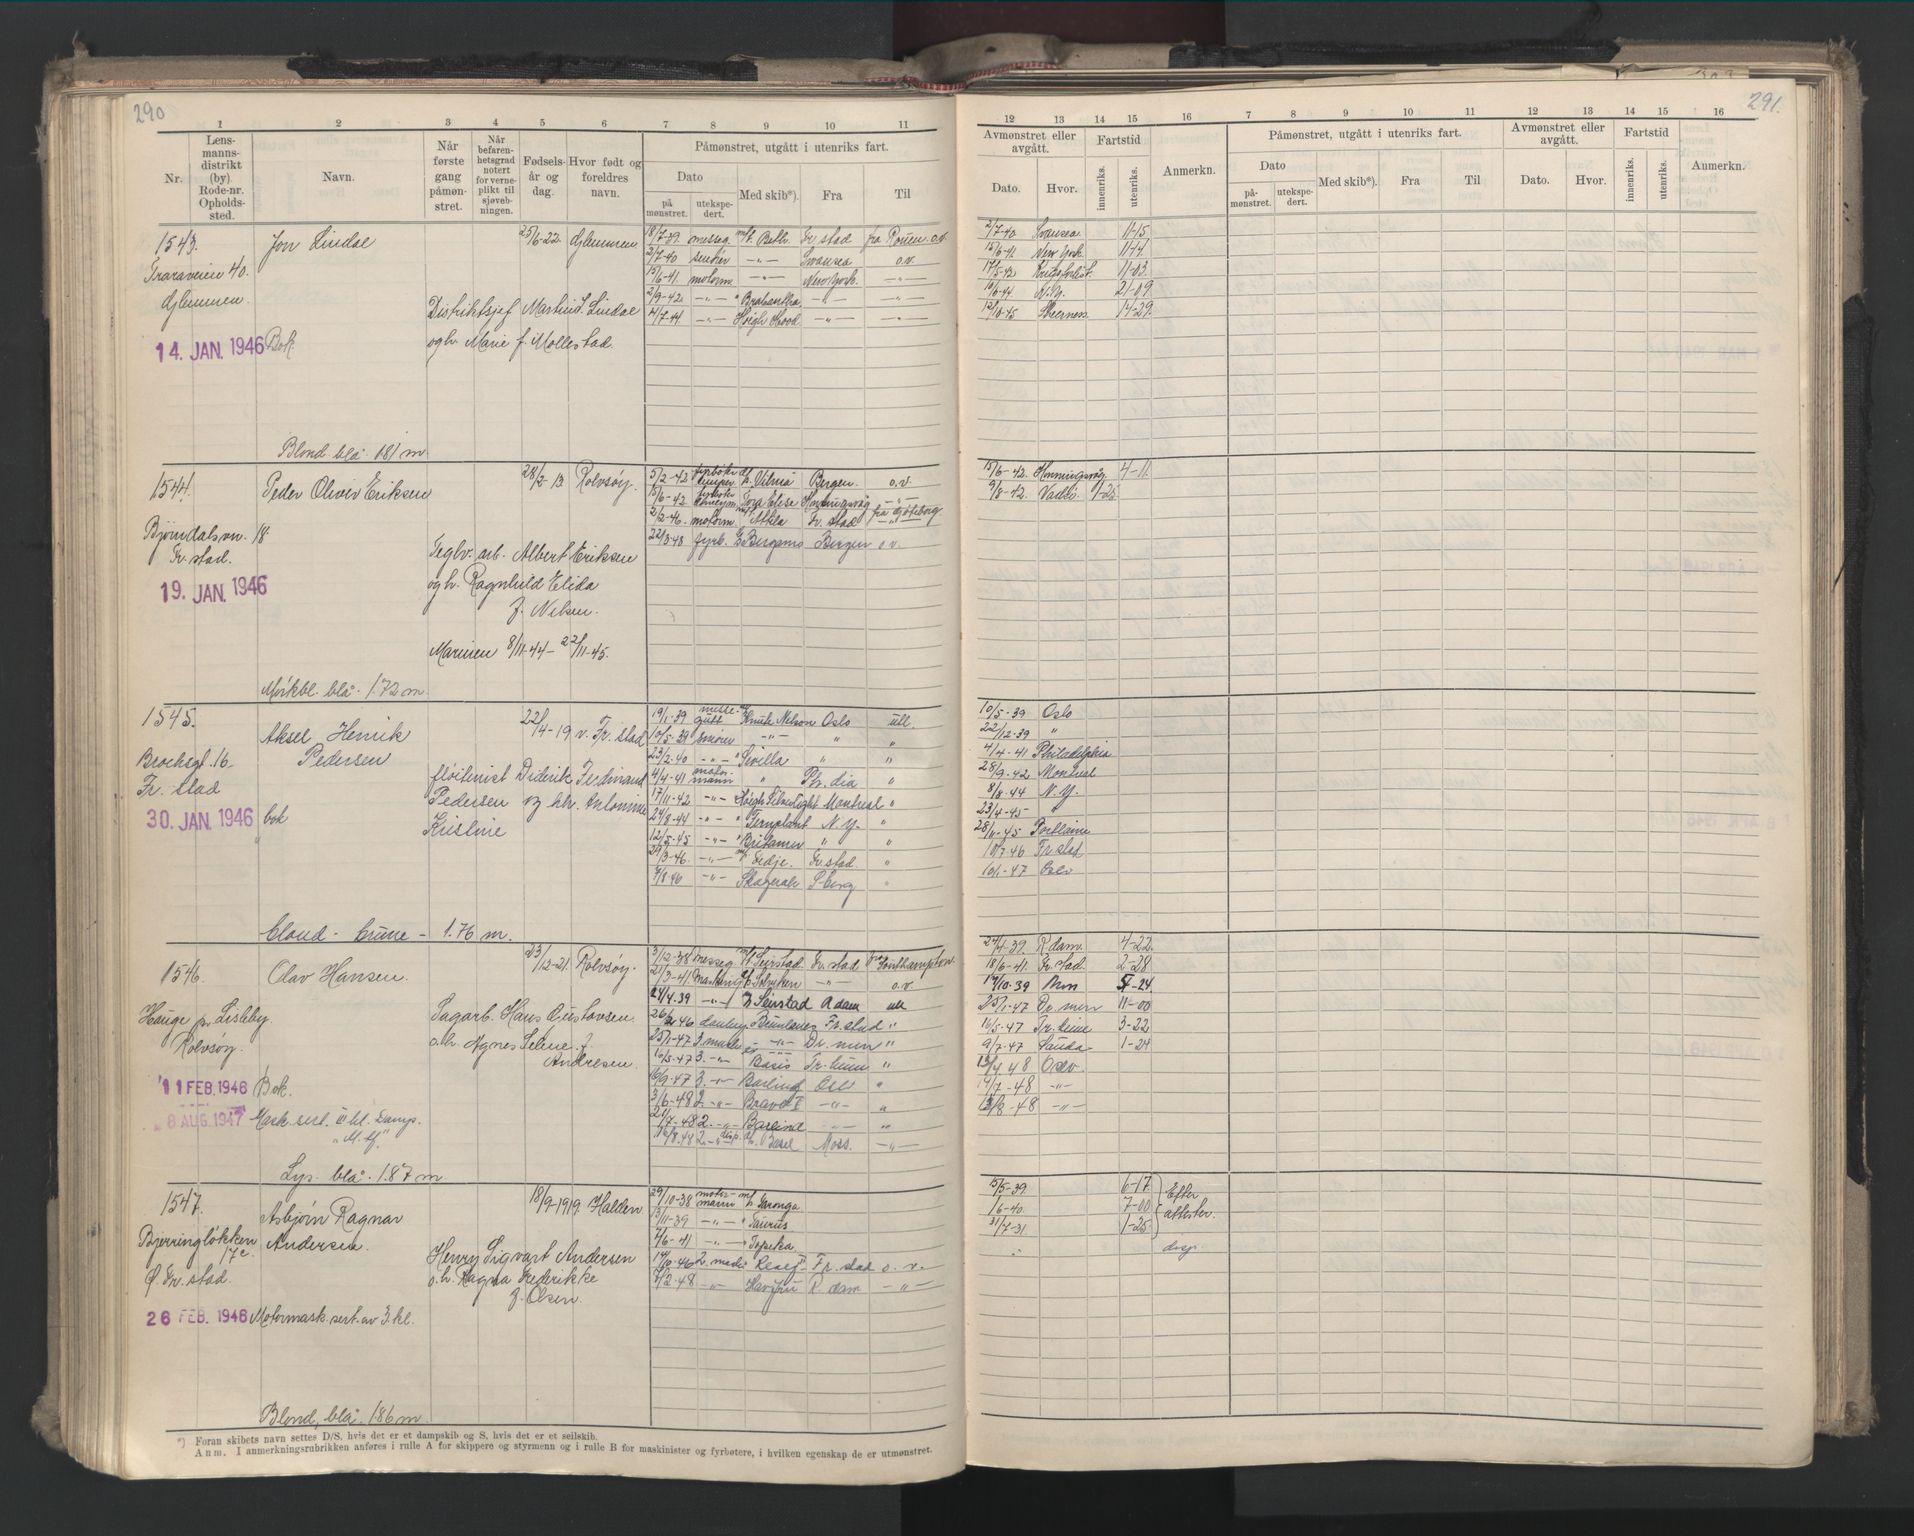 290
1 2 3 4 5 6 7 8 9 10 11
Nr.
Lens-
manns-
distrikt
(by).
Rode-nr.
Opholds-
sted.
Navn.
Når
første
gang
påmøn-
stret.
Når
befaren-
hetsgrad
notert
for verne-
plikt til
sjøveb-
ningen.
Fødsels-
år og
dag.
Hvor født og
foreldres
navn.
Påmønstret, utgått i utenriks fart.
Dato
på
mønstret.
utekspe-
dert.
Med skib*).
Fra
Til
1543. Jon Lindoe 25/6-22. Glemmen
Traraveien 40.
Glemmen.
Distriktsjef Martin S. Lindoe
og h. Marie f. Mollestad.
14. JAN. 1946 Bok
Blond blå 181 m.
18/7-39. messeg. m/t. Beth. Fr.stad fra Rouen o.v.
2/7-40 -"- Swansea o.v.
15/6-41. motorm. -"- New York. -"-
2/9-42. -"- " Brabantha -"- -"-
4/7-44 -"- Høigh Hood. -"- -"-
1544. Peder Olivir Eriksen 28/2-13 Rolvsøy.
Bjørndalsvn. 18
Fr.stad.
19. JAN. 1946
Teglv. arb. Albert Eriksen
og h. Ragnhild Elida
f. Nilsen.
Marinen 8/11-44 - 22/11-45.
Mørkbl. blå. 1.72 m.
5/2-42 fyrbøter Vilma Bergen. o.v.
15/6-42 Tora Elise Honningsvåg -"-
2/2-46. motorm. Attila Fr.stad fra Göteborg
22/3-48 fyrb. Bergen o.v.
1545. Aksel Henrik
Pedersen 22/4-19 v. Fr.stad
Brochsgt. 16
Fr.stad
30. JAN. 1946 bok
fløitenist Diderik Ferdinand
Pedersen og hh. Antonine
Kristine
blond - brune - 1.76 m.
19/1-39 messe-
gutt Knute Nelson Oslo utl
10/5-39 -"- " "
23/2-40 -"- " Sevilla " "
4/4-41 motor-
mann " Ph.dia "
17/11-42 -"- Høigh Silverlight Montreal "
24/8-44 -"- " Fernplant N.Y. "
12/5-45 -"- " " "
29/3-46. -"- Fr.stad. "
7/8-46 -"- Skagerak S.borg "
1546. Olav Hansen. 23/12-21. Rolvsøy.
Hauge p. Lisleby.
Rolvsøy.
Sagarb. Hans Gustavsen.
o.h. Agnes Seline f.
Andresen.
11 FEB. 1946 Bok.
8 AUG. 1947 Mask. sert. III kl. Damp.
"M.M."
Lys. blå. 1.87 m
3/12-38 messeg. Seirstad. Fr.stad fra Southampton
21/3-41. -"- o.v.
24/4.39 -"- Seirstad Adam utl
26/-46 Fr.stad "
25/1-47 3 mask -"- Dr.men "
16/5-47 3. -"- Basis Fr.heim "
16/9-47 3. -"- Barlind Oslo "
3/6-48 2. -"- Bravo I -"- "
21/7-48 2. -"- Barlind -"- "
16/8.48 2. -"- disp. Basel Moss. -"-
1547. Asbjørn Ragnar
Andersen. 18/9-1919. Halden
Bjerringløkken
17c
Ø. Fr.stad.
Henry Sigvart Andersen
o.h. Ragna Frederikke
f. Olsen.
26 FEB. 1946 Motormask. sert. av 3. kl.
Blond, blå. 186 m.
29/10-38 motor-
mann Taronga.
13/11-39 -"- " Taurus
7/6-41 -"- " Topeka.
14/10-46 2. mask. Fr.stad o.v.
7/2-48 -"- R.dam -"-
*) Foran skibets navn settes D/S, hvis det er et dampskib og S, hvis det er et seilskib.
Anm. I anmerkningsrubrikken anføres i rulle A for skippere og styrmenn og i rulle B for maskinister og fyrbøtere, i hvilken egenskap de er utmønstret.
291.
12 13 14 15 16 7 8 9 10 11 12 13 14 15 16
Avmønstret eller
avgått.
Dato.
Hvor.
Fartstid
innenriks.
utenriks.
Anmerkn.
Påmønstret, utgått i utenriks fart.
Dato
på-
mønstret.
utekspe-
dert.
Med skib*).
Fra
Til
Avmønstret eller
avgått.
Dato.
Hvor.
Fartstid
innenriks.
utenriks.
Anmerkn.
2/7-40 Swansea 11-15
15/6-41. New York. 11-11.
17/5-42 11-03.
10/6-44. N.Y. 21-09
12/10-45 14-29.
15/6-42. Honningsvåg 4-11.
9/8-42. Vadsö 1-25
10/5-39 Oslo
22/12-39 "
4/4-41 Philadelphia
28/9-42 Montreal
8/8-44 N.Y.
23/4-45 -
28/11-45 Portlaine
10/7-46 Fr.stad
10/1-47 Oslo
24/4-39. R.dam. 4-22.
18/6-41. Fr.stad. 2-28
17/10.39 5-24
25/1-47 Dr.men 11-00
16/5-47 Fr.heim 3-22
9/7-47 Sauda 1-24
13/4 48 Oslo
14/7-48 -"-
13/8-48 -"-
15/5-39. 6-17
1/6-40. 7-00
31/7-31 1-25.
Efter
attester.
disp.